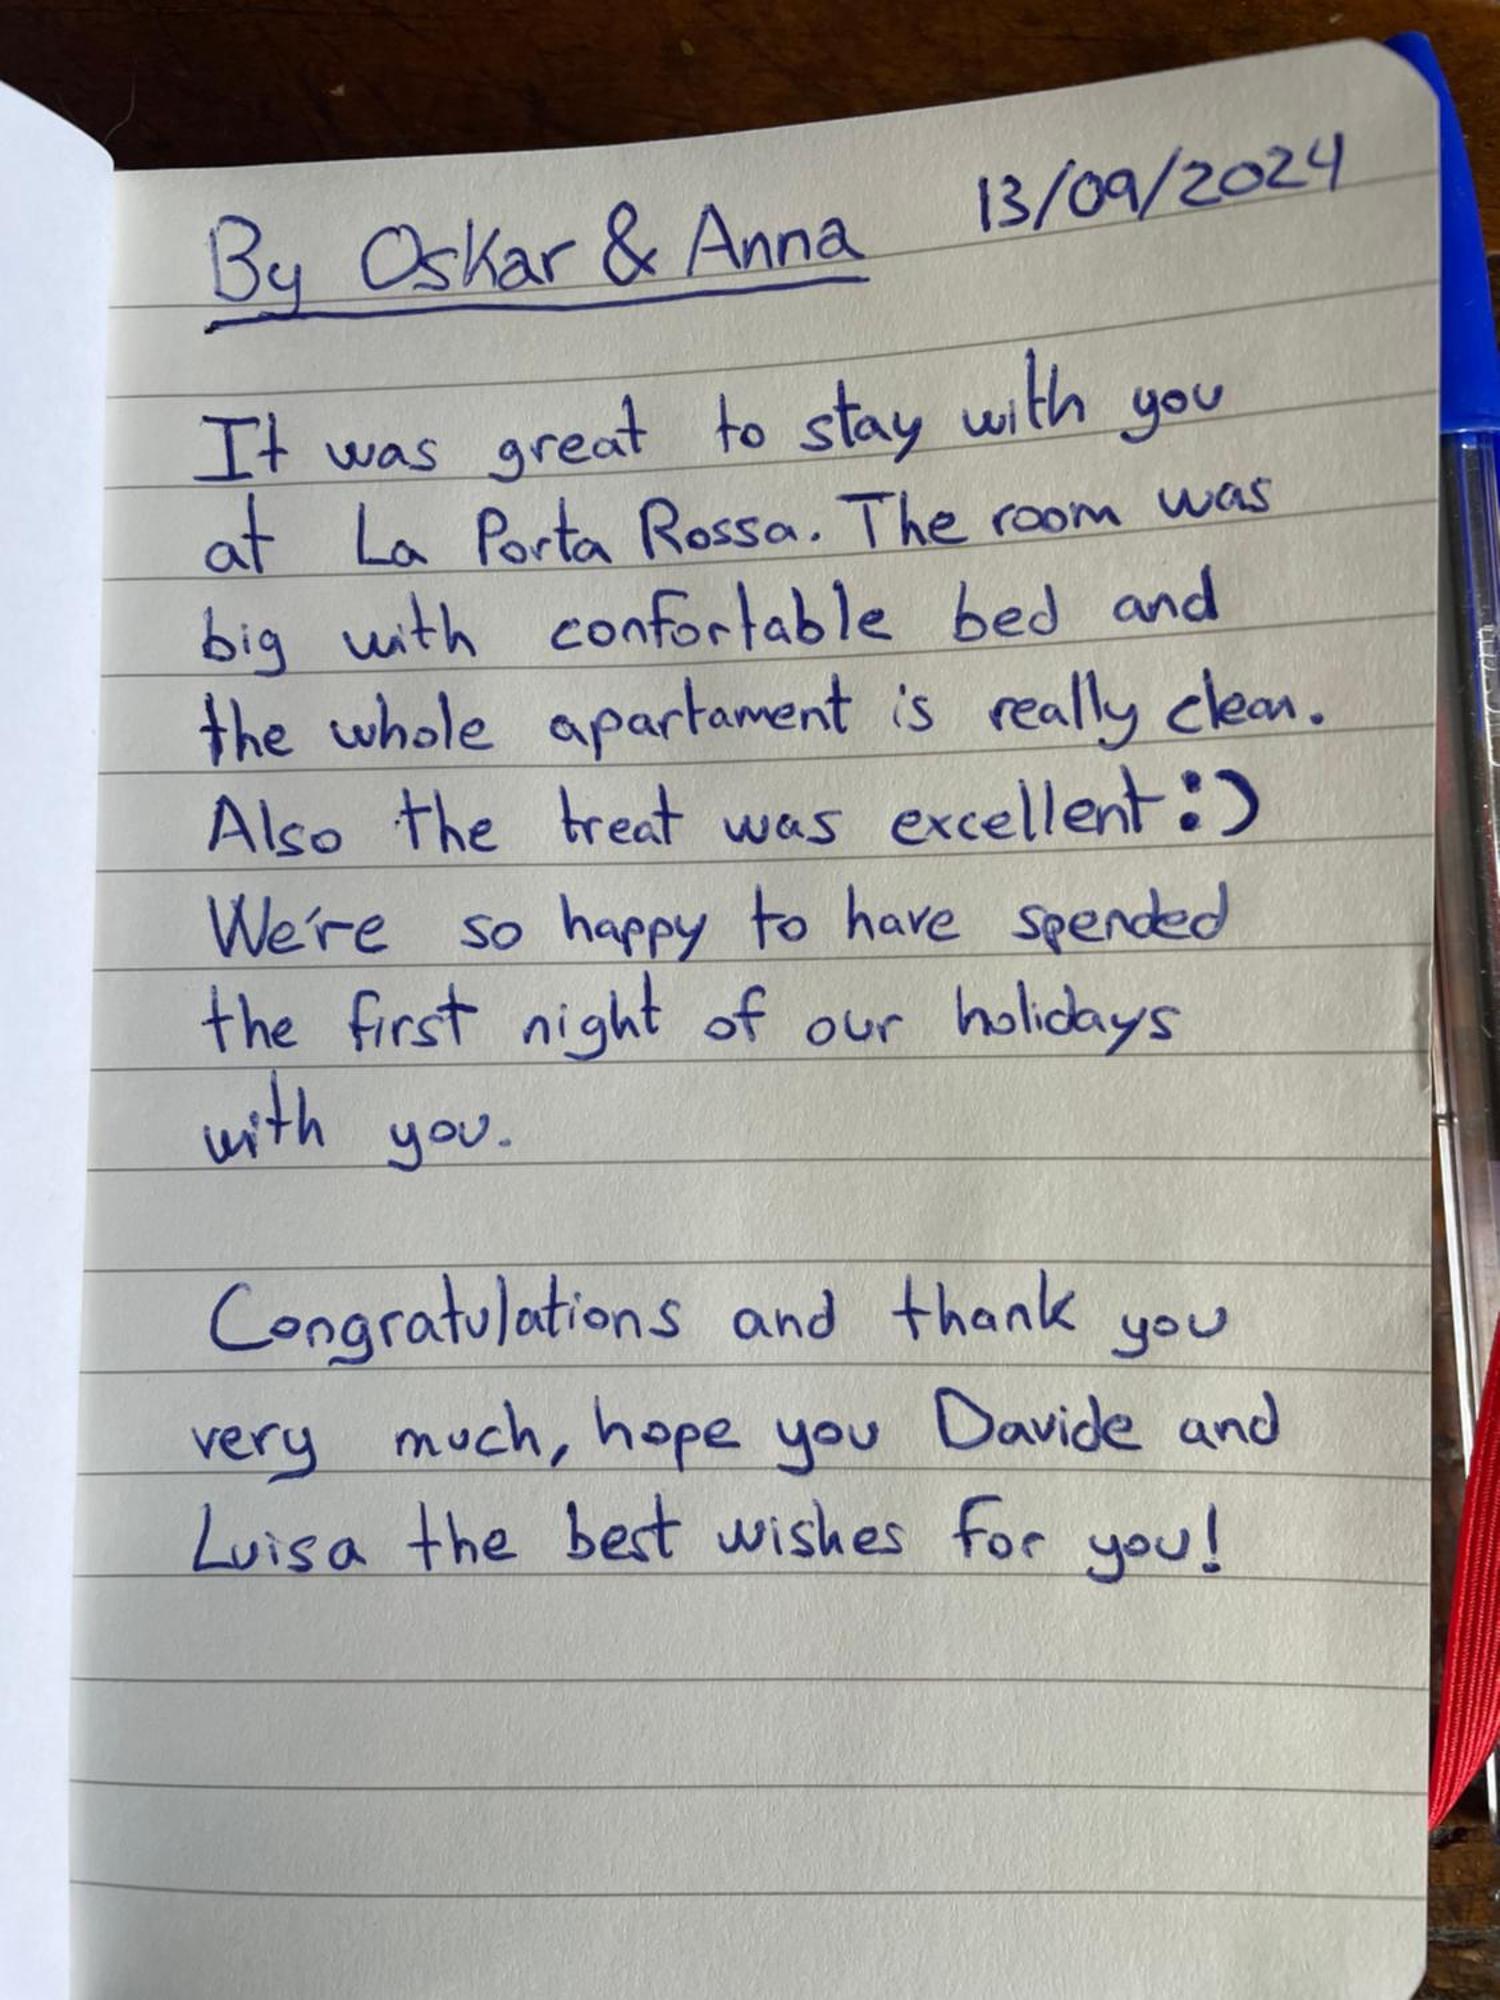 By Oskar & Anna 13/09/2024
It was great to stay with you
at La Porta Rossa. The room was
big with confortable bed and
the whole apartament is really clean.
Also the treat was excellent :)
We're so happy to have spended
the first night of our holidays
with you.
Congratulations and thank you
very much, hope you Davide and
Luisa the best wishes for you!